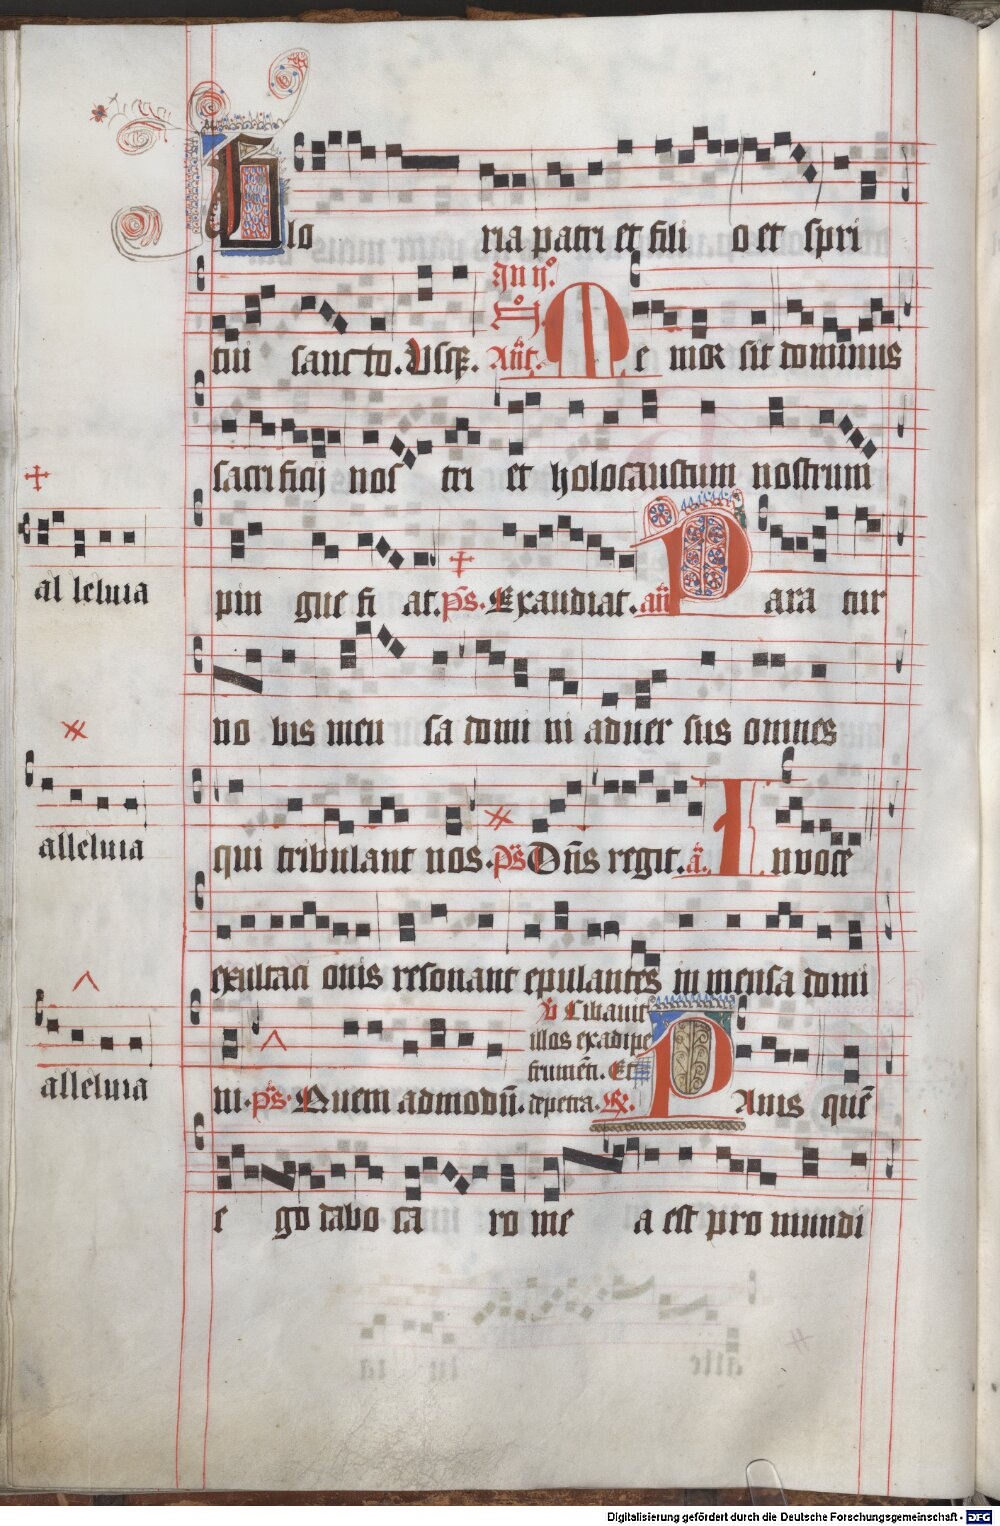 Glo ria patri et fili o et spri
tui sancto. Vsqꝫ. In ijº. nº. Añt. Me mor sit dominus
sacrificij nos tri et holocaustum nostrum
al leluia
pin gue fi at. p̄s. Exaudiat. añ Para tur
no bis men sa domi ni aduer sus omnes
alleluia
qui tribulant nos. p̄s Dñs regit. a᷃. In voce
exultaci onis resonant epulantes in mensa domi
alleluia
ni. p̄s. Quem admodū. ℣ Cibauit
illos exadipe
frumēti. Et
depetra. ℟. Panis quē
e go dabo ca ro me a est pro mundi
Digitalisierung gefördert durch die Deutsche Forschungsgemeinschaft - DFG